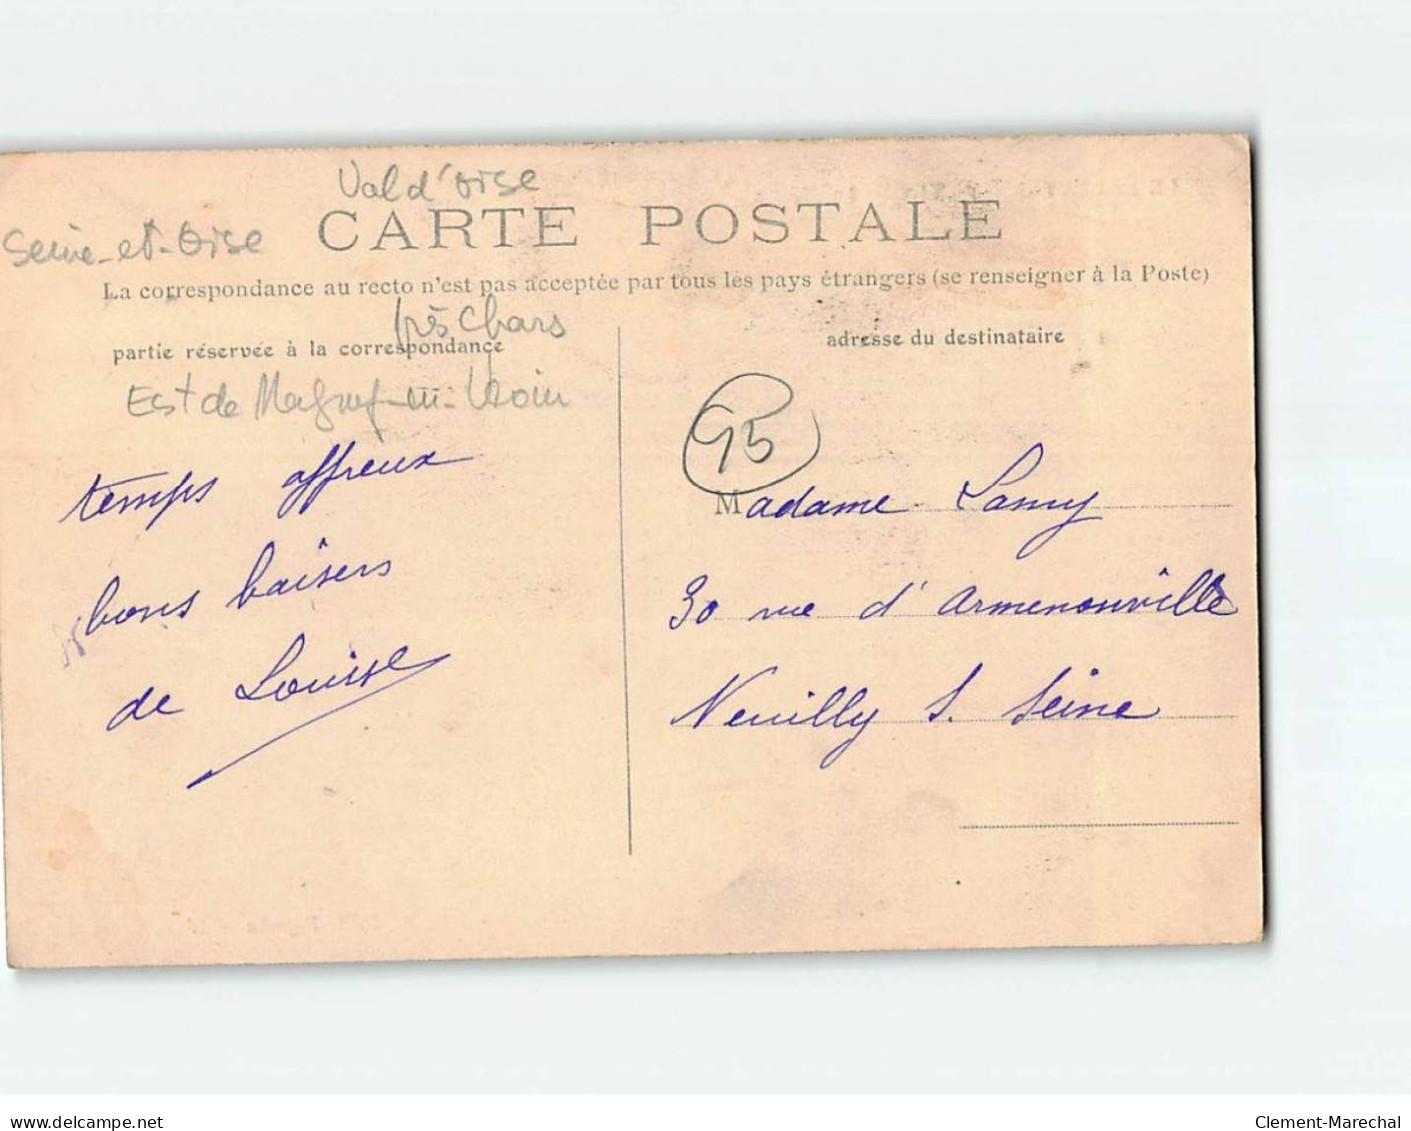 Val d'Oise
Seine-et-Oise
CARTE POSTALE
La correspondance au recto n'est pas acceptée par tous les pays étrangers (se renseigner à la Poste)
près Chars
partie réservée à la correspondance
adresse du destinataire
Est de Magny-en-Vexin
95
temps affreux
bons baisers
de Louise
Madame Lamy
30 rue d'Armenonville
Neuilly S. Seine
www.delcampe.net
Clement-Marechal